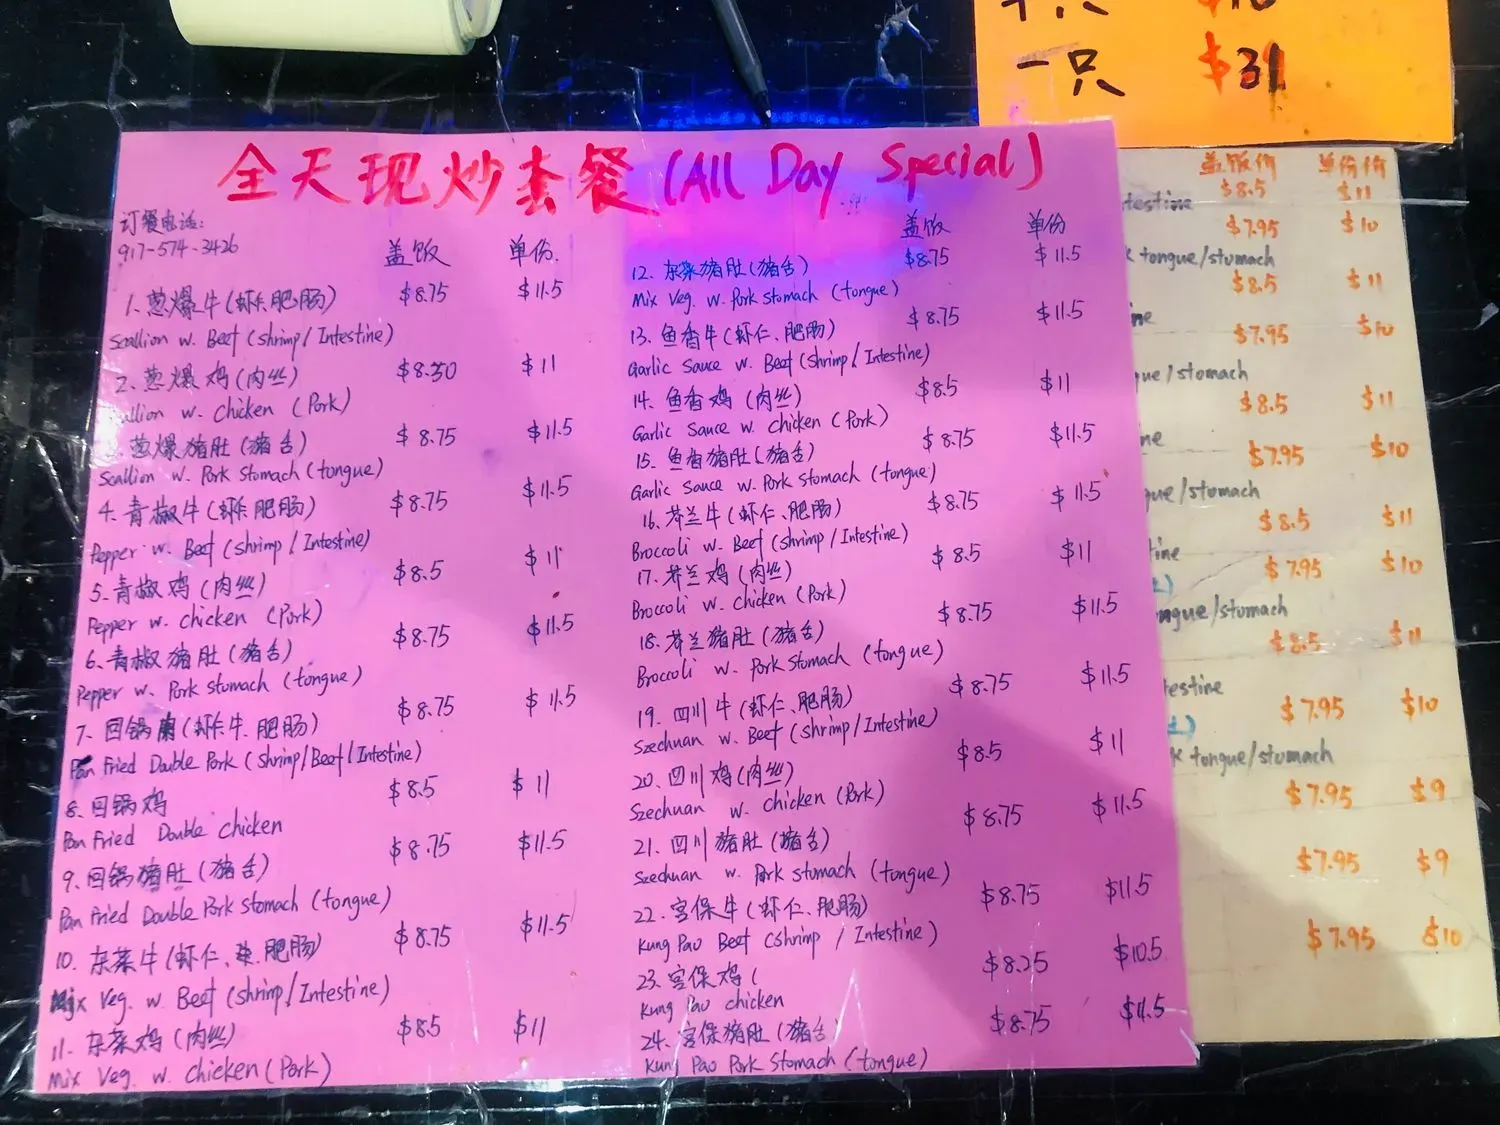 一只 $31
全天现炒套餐(All Day Special)
订餐电话:
917-574-3426
盖饭 单份
1. 葱爆牛(虾仁.肥肠) $8.75 $11.5
Scallion w. Beef (shrimp/Intestine)
2. 葱爆鸡(肉丝) $8.50 $11
Scallion w. chicken (Pork)
3. 葱爆猪肚(猪舌) $8.75 $11.5
Scallion w. Pork Stomach (tongue)
4. 青椒牛(虾仁.肥肠) $8.75 $11.5
Pepper w. Beef (shrimp/Intestine)
5. 青椒鸡(肉丝) $8.5 $11
Pepper w. chicken (Pork)
6. 青椒猪肚(猪舌) $8.75 $11.5
Pepper w. Pork stomach (tongue)
7. 回锅肉(虾仁牛.肥肠) $8.75 $11.5
Pan Fried Double Pork (Shrimp/Beef/Intestine)
8. 回锅鸡 $8.5 $11
Pan Fried Double chicken
9. 回锅猪肚(猪舌) $8.75 $11.5
Pan Fried Double Pork Stomach (tongue)
10. 杂菜牛(虾仁、肥肠) $8.75 $11.5
Mix Veg. w. Beef (shrimp/Intestine)
11. 杂菜鸡(肉丝) $8.5 $11
Mix Veg. w. chicken (Pork)
盖饭 单份
12. 杂菜猪肚(猪舌) $8.75 $11.5
Mix Veg. w. Pork Stomach (tongue)
13. 鱼香牛(虾仁、肥肠) $8.75 $11.5
Garlic Sauce w. Beef (Shrimp/Intestine)
14. 鱼香鸡(肉丝) $8.5 $11
Garlic Sauce w. chicken (Pork)
15. 鱼香猪肚(猪舌) $8.75 $11.5
Garlic Sauce w. Pork Stomach (tongue)
16. 芥兰牛(虾仁、肥肠) $8.75 $11.5
Broccoli w. Beef (shrimp/Intestine)
17. 芥兰鸡(肉丝) $8.5 $11
Broccoli w. chicken (Pork)
18. 芥兰猪肚(猪舌) $8.75 $11.5
Broccoli w. Pork Stomach (tongue)
19. 四川牛(虾仁、肥肠) $8.75 $11.5
Szechuan w. Beef (shrimp/Intestine)
20. 四川鸡(肉丝) $8.5 $11
Szechuan w. chicken (Pork)
21. 四川猪肚(猪舌) $8.75 $11.5
Szechuan w. Pork stomach (tongue)
22. 宫保牛(虾仁、肥肠) $8.75 $11.5
Kung Pao Beef (shrimp / Intestine)
23. 宫保鸡( $8.25 $10.5
Kung Pao chicken
24. 宫保猪肚(猪舌 $8.75 $11.5
Kung Pao Pork Stomach (tongue)
盖饭价 单份价
$8.5 $11
testine
$7.95 $10
k tongue/stomach
$8.5 $11
ine
$7.95 $10
gue/stomach
$8.5 $11
ine
$7.95 $10
gue/stomach
$8.5 $11
tine
$7.95 $10
ngue/stomach
$8.5 $11
testine
$7.95 $10
k tongue/stomach
$7.95 $9
$7.95 $9
$7.95 $10